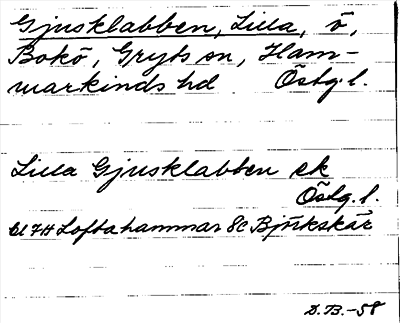 Gjusklabben, Lilla, ö,
Bokö, Gryts sn, Ham-
markinds hd Östg. l.
Lilla Gjusklabben ek
Östg. l.
bl 7H Loftahammar 8C Björkskär
D.B.-58